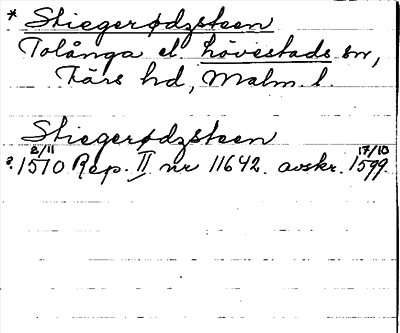 * Stiegerødzsteen
Tolånga el. hövestads sn,
Färs hd, Malm. l.
Stiegerødzsteen
2/11 17/10
? 1510 Rep. II nr 11642. avskr. 1599.